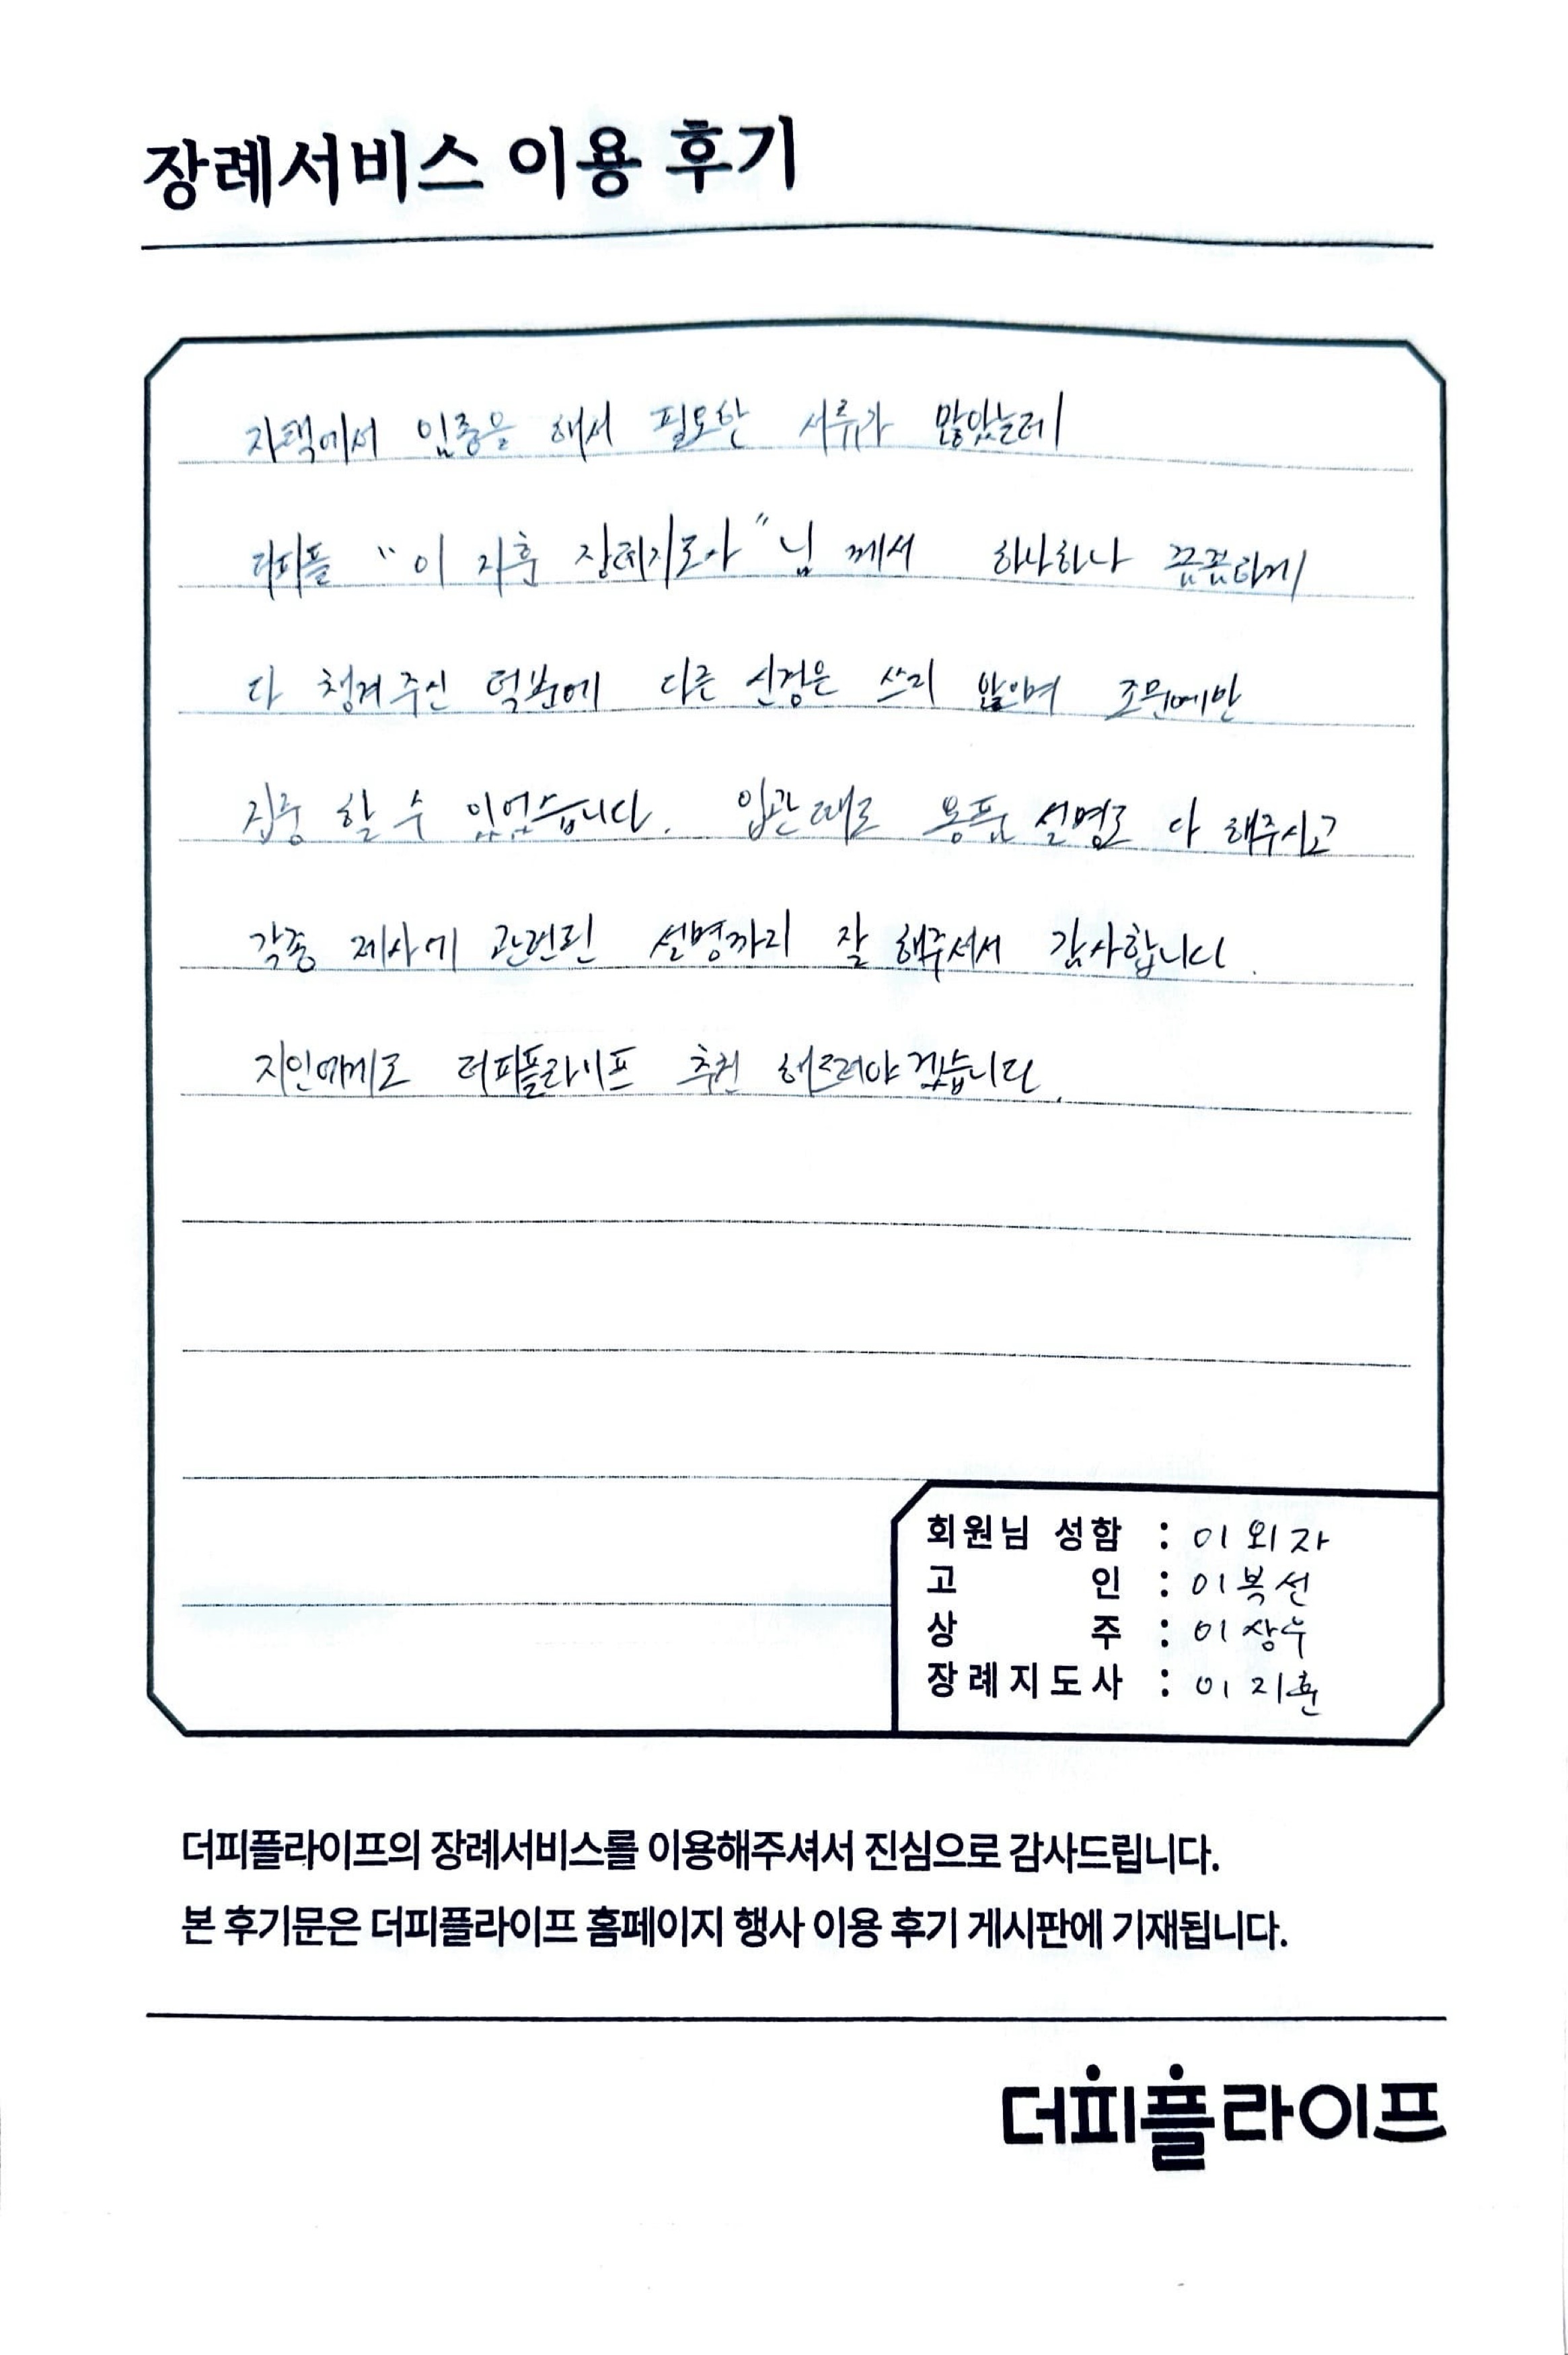 장례서비스 이용 후기
자택에서 임종을 해서 필요한 서류가 많았는데
더피플 "이 지훈 장례지도사"님 께서 하나하나 꼼꼼하게
다 챙겨주신 덕분에 다른 신경은 쓰지 않으며 조문에만
집중 할 수 있었습니다. 입관때도 용품 설명도 다 해주시고
각종 제사에 관련된 설명까지 잘 해주셔서 감사합니다.
지인에게도 더피플라이프 추천 해드려야겠습니다.
회원님 성함 : 이외자
고 인 : 이복선
상 주 : 이상우
장례지도사 : 이지훈
더피플라이프의 장례서비스를 이용해주셔서 진심으로 감사드립니다.
본 후기문은 더피플라이프 홈페이지 행사 이용 후기 게시판에 기재됩니다.
더피플라이프